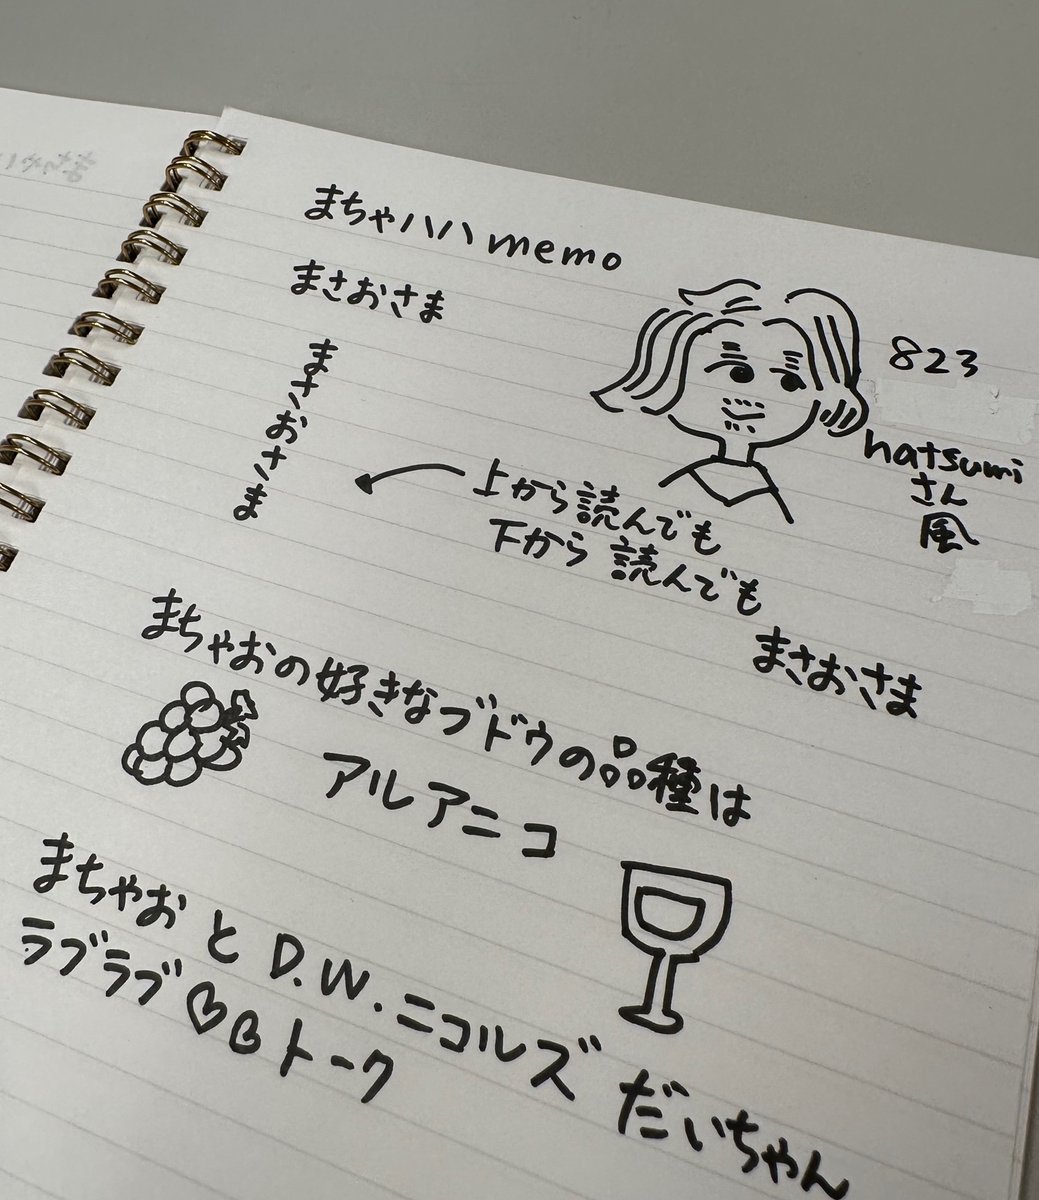 まちゃハハmemo
まさおさま
まさおさま
上から読んでも
下から読んでも
まさおさま
823
hatsumi
さん
風
まちゃおの好きなブドウの品種は
アルアニコ
まちゃおとD.W.ニコルズだいちゃん
ラブラブ♡♡トーク